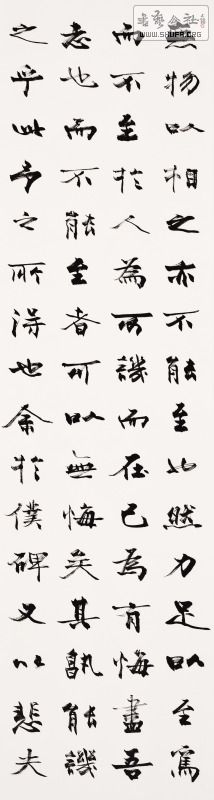 書藝公社
WWW.SHUFA.ORG
無物以相之亦不能至也然力足以至焉
而不至於人為可譏而在己為有悔盡吾
志也而不能至者可以無悔矣其孰能譏
之乎此予之所得也余於僕碑又以悲夫